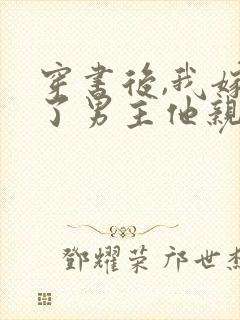 穿書後,我嫁
了男主他親
鄧耀荣 邝世杰